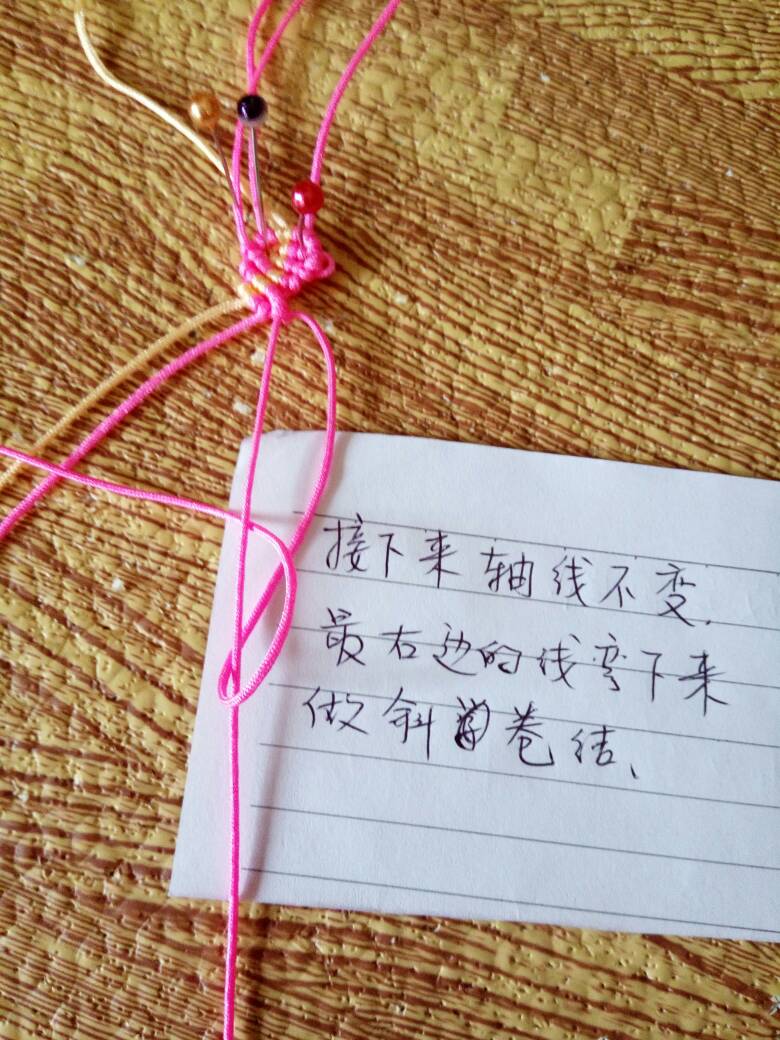 接下来轴线不变.
最右边的线弯下来
做斜卷结、